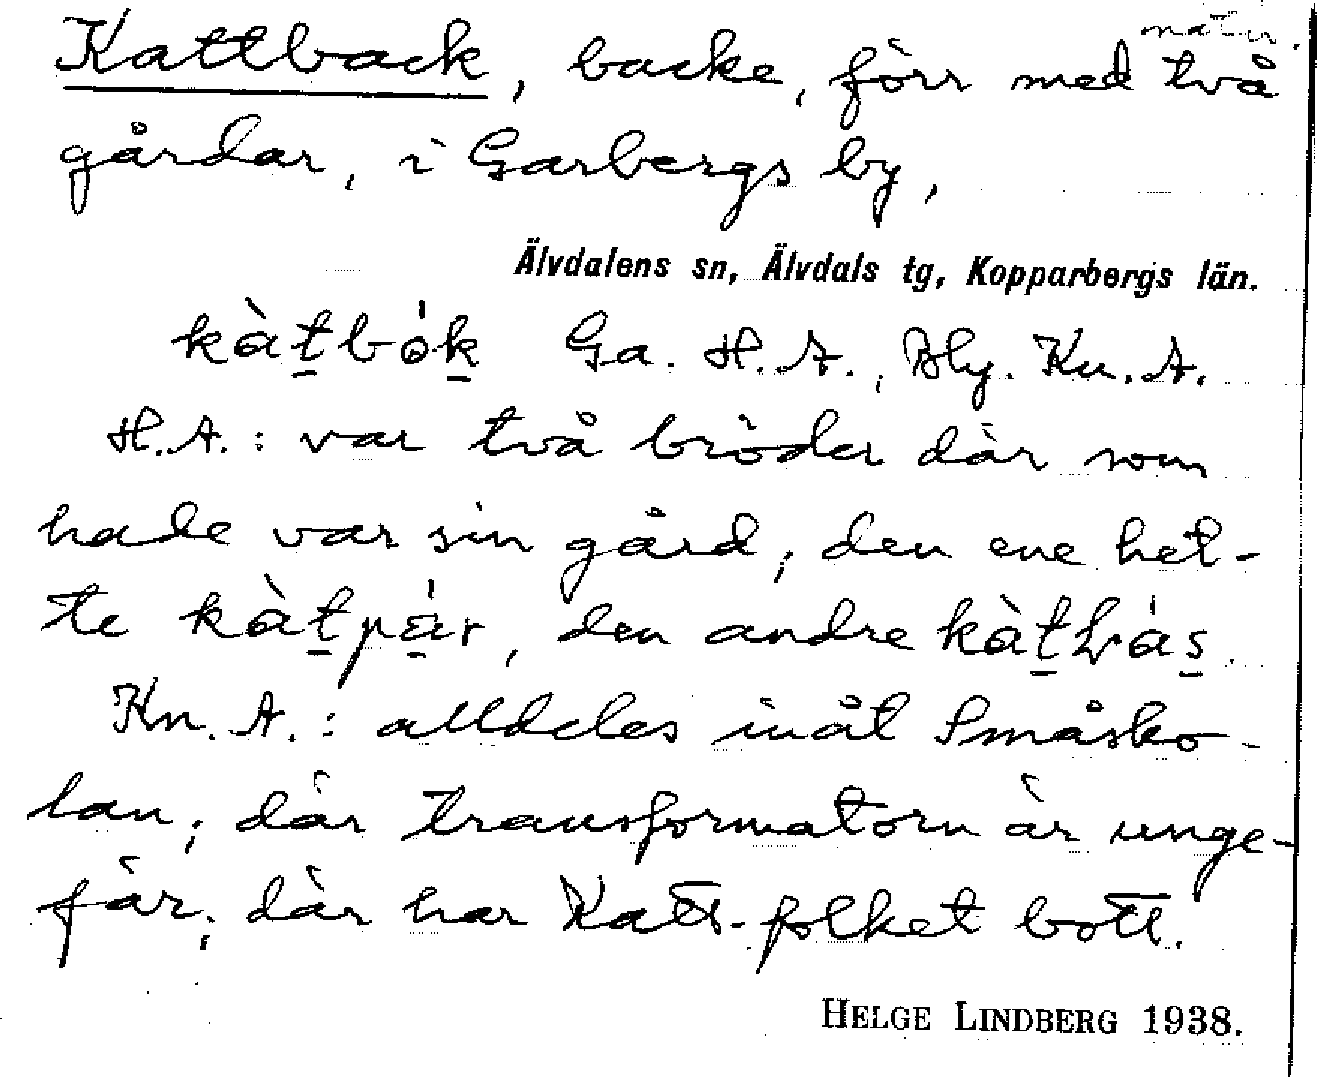 natur.
Kattback, backe, förr med två
gårdar, i Garbergs by,
Älvdalens sn, Älvdals tg, Kopparbergs län.
kàt̠bók̠ Ga. H.A., Bly. Kn. A.
H.A.: var två bröder där som
hade var sin gård, den ene het-
te kàt̠pa̠r, den andre
Kn. A.: alldeles inåt Småsko-
lan; där transformatorn är unge-
fär; där har Katt-folket bott.
HELGE LINDBERG 1938.